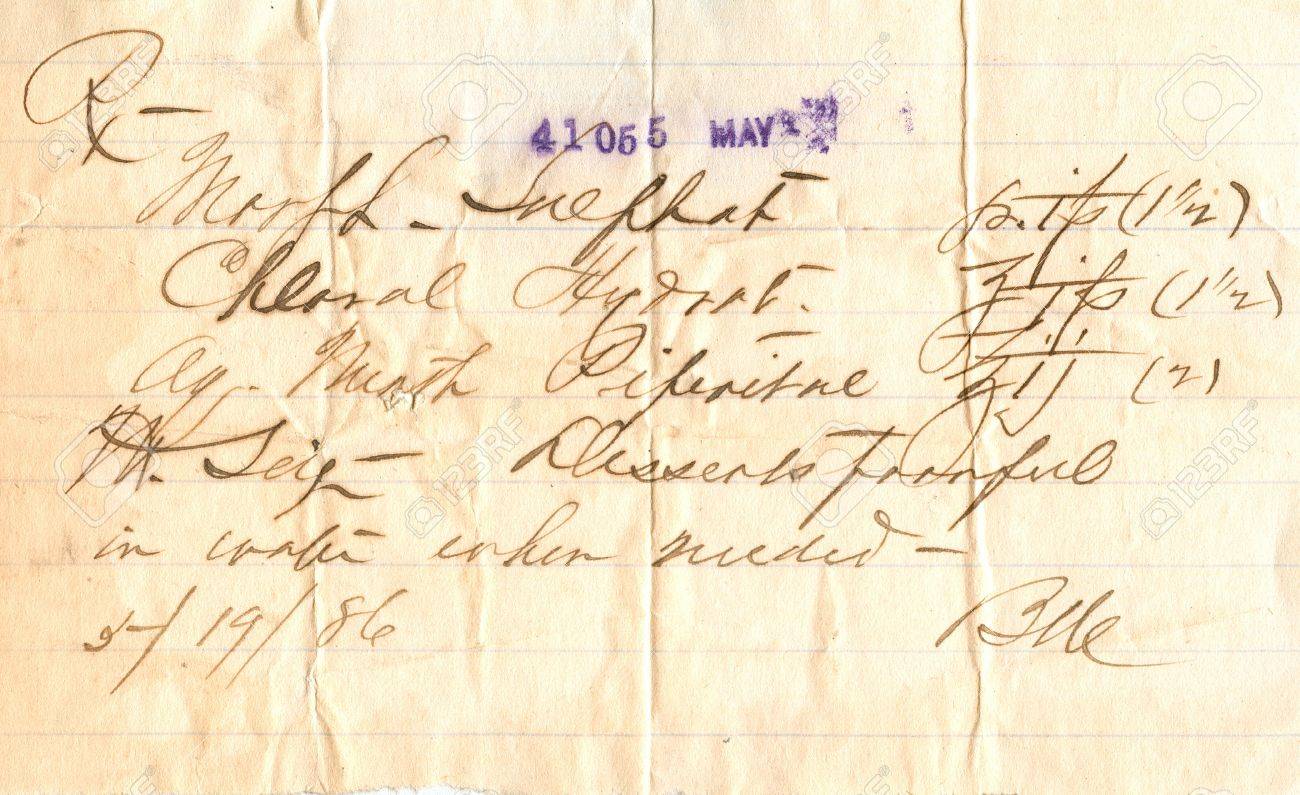 Rx —
41055 MAY
Morph. Sulphat gr. iſs (1 1/2)
Chloral Hydrat. ʒ iſs (1 1/2)
Aq. Menth Piperitae ℥ ij (2)
M. Sig — Dessertspoonful
in water when needed —
5/19/86